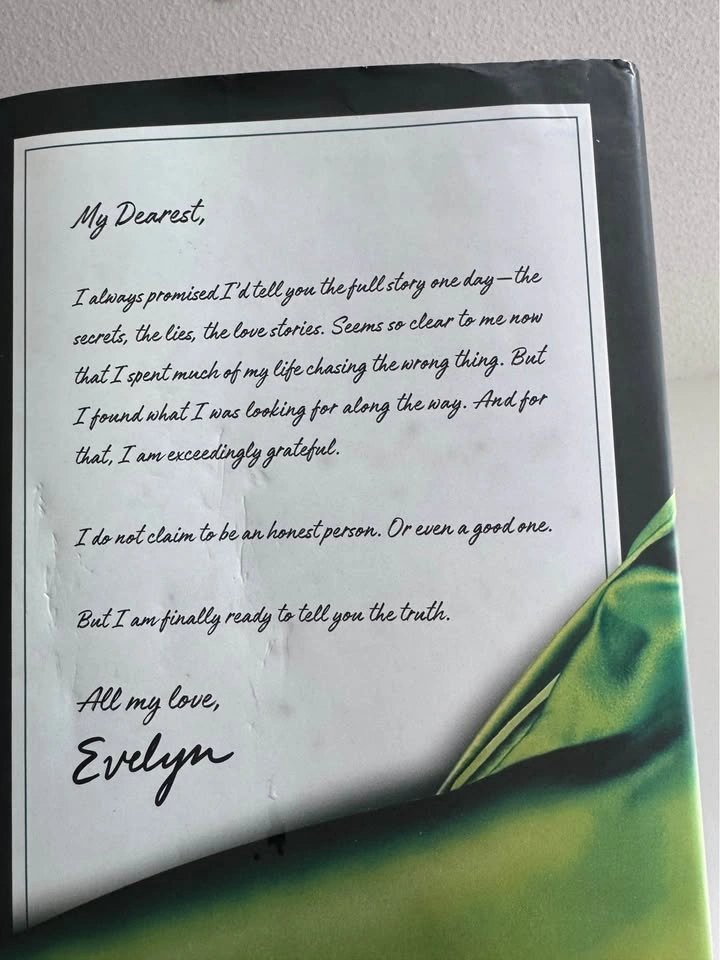 My Dearest,
I always promised I'd tell you the full story one day—the
secrets, the lies, the love stories. Seems so clear to me now
that I spent much of my life chasing the wrong thing. But
I found what I was looking for along the way. And for
that, I am exceedingly grateful.
I do not claim to be an honest person. Or even a good one.
But I am finally ready to tell you the truth.
All my love,
Evelyn